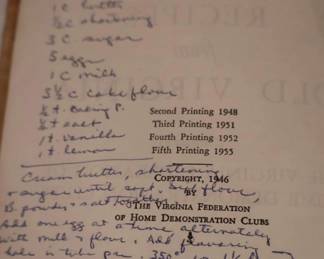 1 C butter
½ C shortening
3 C sugar
5 eggs
1 C milk
3½ C Cake flour
½ t. Baking P.
½ t salt
1 t. vanilla
1 t lemon
RECIPES
from
OLD VIRGINIA
Second Printing 1948
Third Printing 1951
Fourth Printing 1952
Fifth Printing 1955
Cream butter, shortening
+ sugar until soft. Sift flour,
B. powder + salt together.
Add one egg at a time alternately
with milk + flour. Add flavoring
bake in tube pan. 350°
Copyright, 1946
BY
The Virginia Federation
of Home Demonstration Clubs